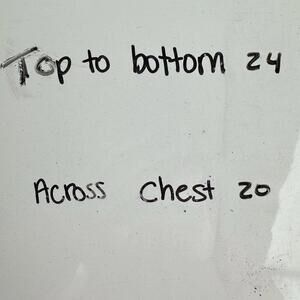 Top to bottom 24
Across Chest 20